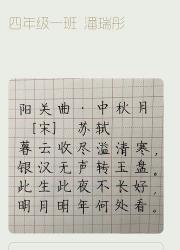 四年级一班 潘瑞彤
阳关曲·中秋月
[宋] 苏轼
暮云收尽溢清寒，
银汉无声转玉盘。
此生此夜不长好，
明月明年何处看。